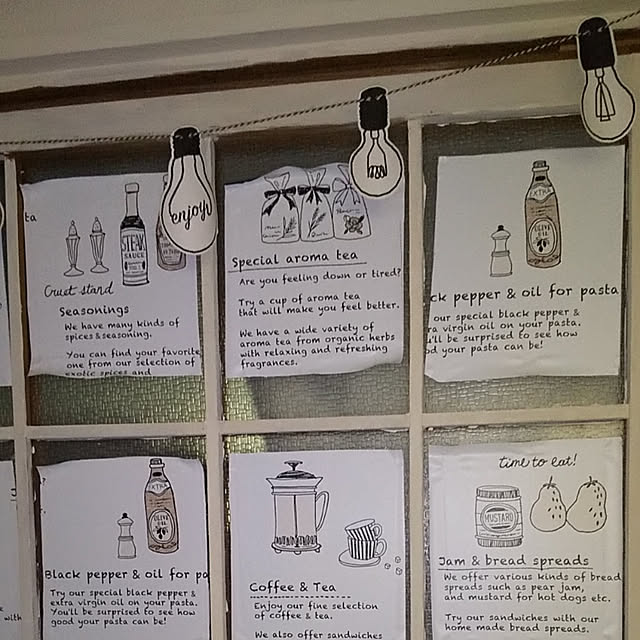 enjoy!
ta
STEAK
SAUCE
Cruet stand
Seasonings
We have many kinds of
spices & seasoning.
You can find your favorite
one from our selection of
exotic spices and
Special aroma tea
Are you feeling down or tired?
Try a cup of aroma tea
that will make you feel better.
We have a wide variety of
aroma tea from organic herbs
with relaxing and refreshing
fragrances.
EXTRA
OLIVE
OIL
ck pepper & oil for pasta
our special black pepper &
ra virgin oil on your pasta.
'll be surprised to see how
od your pasta can be!
with
EXTRA
OLIVE
OIL
Black pepper & oil for pa
Try our special black pepper &
extra virgin oil on your pasta.
You'll be surprised to see how
good your pasta can be!
Coffee & Tea
Enjoy our fine selection
of coffee & tea.
We also offer sandwiches
time to eat!
MUSTARD
Jam & bread spreads
We offer various kinds of bread
spreads such as pear jam,
and mustard for hot dogs etc.
Try our sandwiches with our
home made bread spreads.